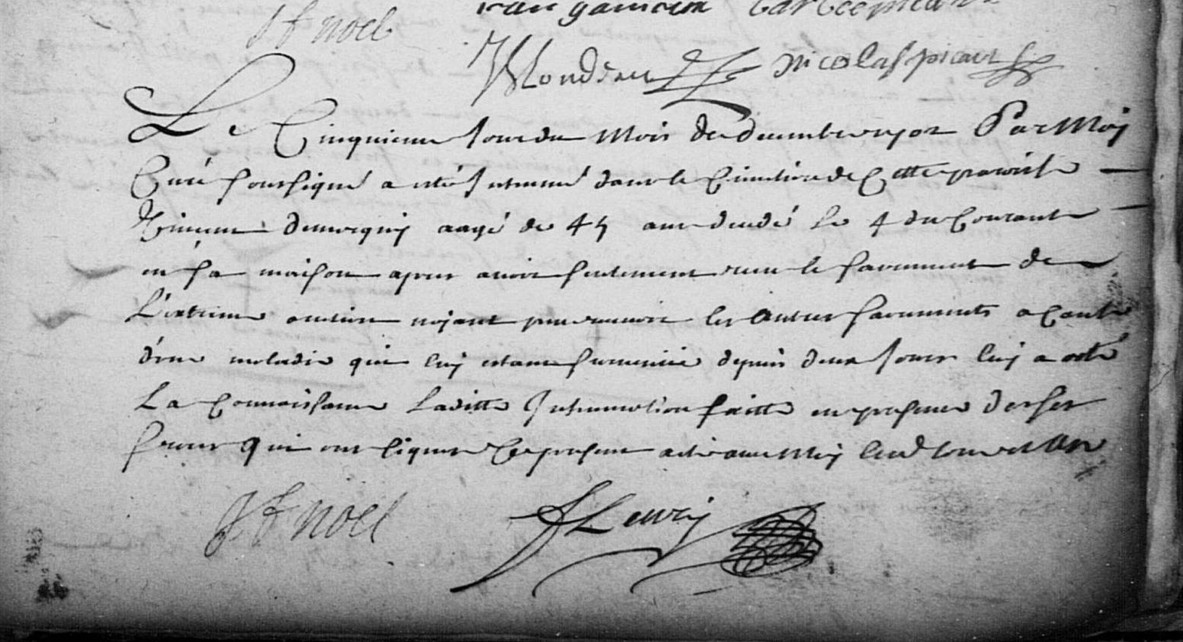 J f noel
Mondeau nicolas picart
Le Cinquieme Jour du Mois de decembre 1702 Par Moy
Curé soussigné a esté Inhumé dans le Cimetiere de Cette paroisse
aagé de 45 ans decedé Le 4 du Courant
en sa maison apres avoir seulement receu le sacrement de
L'extreme onction n'ayant peu recevoir les autres sacrements a cause
d'une maladie qui luy estant survenüe depuis deux Jours luy a osté
La Connoissance Laditte Inhumation faitte en presence de ses
freres Qui ont signéz Ce present acte avec Moy lesd Jour et An
J f noel fleury